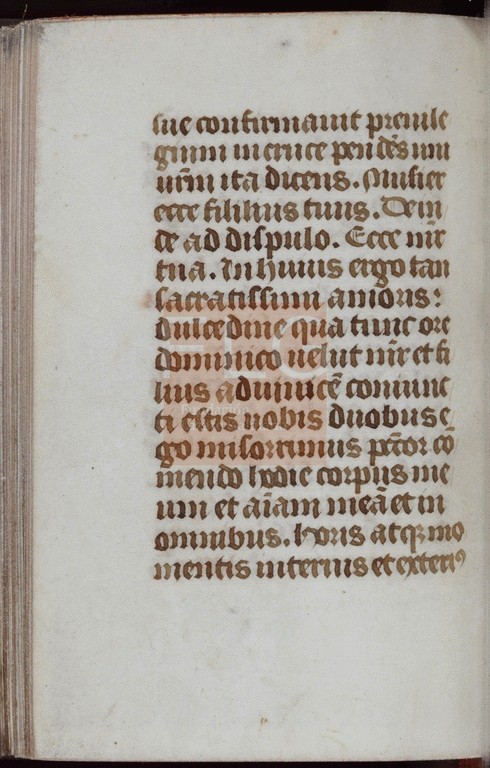 sue confirmauit preuile
gium in cruce pendēs uni
ur̄m ita dicens. Mulier
ecce filihus tuus. Dein
de ad dispulo. Ecce mr̄
tua. In huius ergo tan
sacratissimi amoris:
dulcedine qua tunc ore
dominico uelut mr̄ et fi
lius aduinicē coniunc
ti estis nobis duobus e
go misorrimus pcc̄or cō
mendo hodie corpus me
um et aīam meā et in
omnibus. horis atqꝫ mo
mentis interius et exteriꝰ